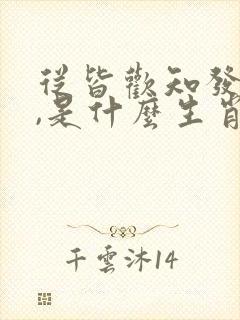 從皆歡知發
,是什麼生肖
千雲沐14